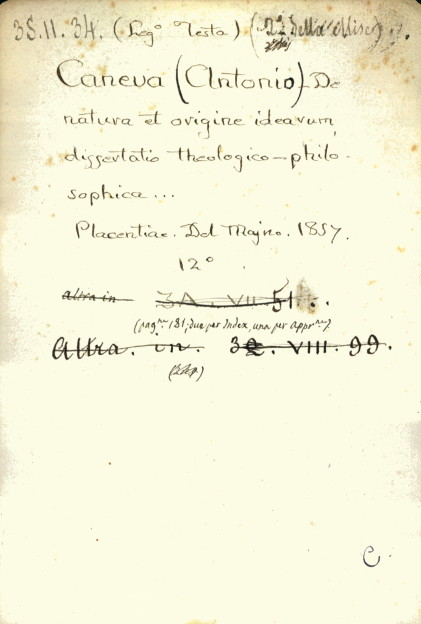 3S. II. 34. (Leg° Testa) (2ª della Misc.
Caneva (Antonio) - De
natura et origine idearum,
dissertatio theologico-philo-
sophica ...
Placentiae. Del Majno. 1857.
12°.
altra in 3A. VII. 51.
(pag.ne 181, due per Index, una per Appr.ne)
Altra. in. VIII. 99.
C.